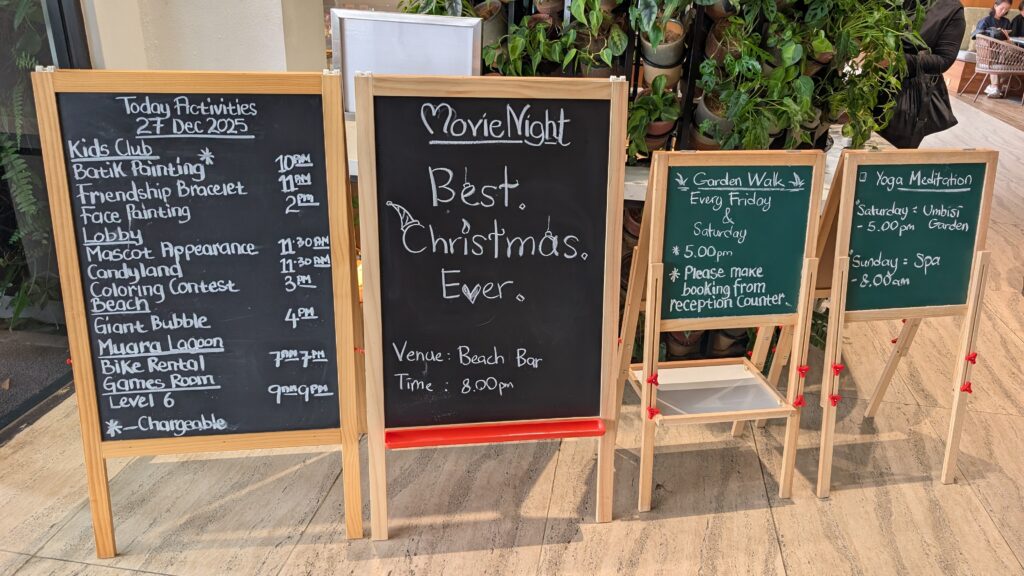 Today Activities
27 Dec 2025
Kids Club
Batik Painting * 10AM
Friendship Bracelet 11AM
Face Painting 2PM
Lobby
Mascot Appearance 11:30AM
Candyland 11:30AM
Coloring Contest 3PM
Beach
Giant Bubble 4PM
Muara Lagoon
Bike Rental 7AM-7PM
Games Room
Level 6 9AM-9PM
* - Chargeable
Movie Night
Best.
Christmas.
Ever.
Venue : Beach Bar
Time : 8.00pm
Garden Walk
Every Friday
&
Saturday
* 5.00pm
* Please make
booking from
reception counter.
Yoga Meditation
Saturday = Umbisi
- 5.00pm Garden
Sunday = Spa
- 8.00am